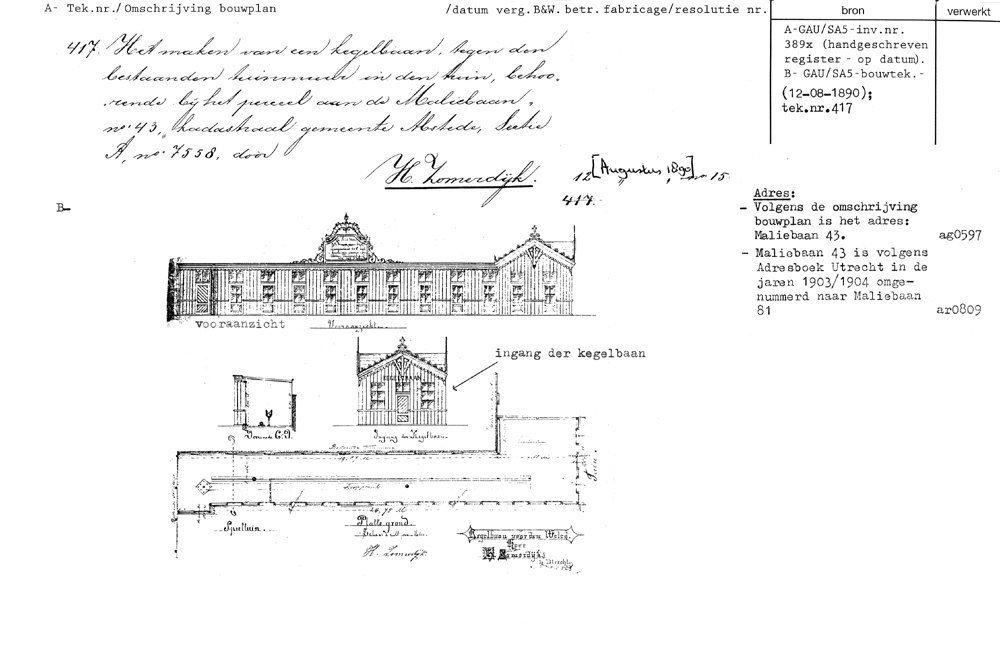 A- Tek.nr./Omschrijving bouwplan
/datum verg.B&W.betr.fabricage/resolutie nr.
bron
verwerkt
417. Het maken van een kegelbaan, tegen den
bestaanden tuinmuur in den tuin, behoo-
rende bij het perceel aan de Maliebaan,
no. 43, kadastraal gemeente Abstede, Sectie
A, no. 7558, door
H. Zomerdijk.
12 [Augustus 1890] no 15
417.
A-GAU/SA5-inv.nr.
389x (handgeschreven
register - op datum).
B- GAU/SA5-bouwtek.-
(12-08-1890);
tek.nr.417
Adres:
- Volgens de omschrijving
bouwplan is het adres:
Maliebaan 43. ag0597
- Maliebaan 43 is volgens
Adresboek Utrecht in de
jaren 1903/1904 omge-
nummerd naar Maliebaan
81 ar0809
B-
vooraanzicht
Vooraanzicht.
ingang der kegelbaan
KEGELBAAN
Doorsnede C.D.
Ingang der Kegelbaan.
24,75 M
Speeltuin.
Platte grond.
H. Zomerdijk
Tuin.
Kegelbaan voor den WelEd.
Heer
H. Zomerdijk
Utrecht